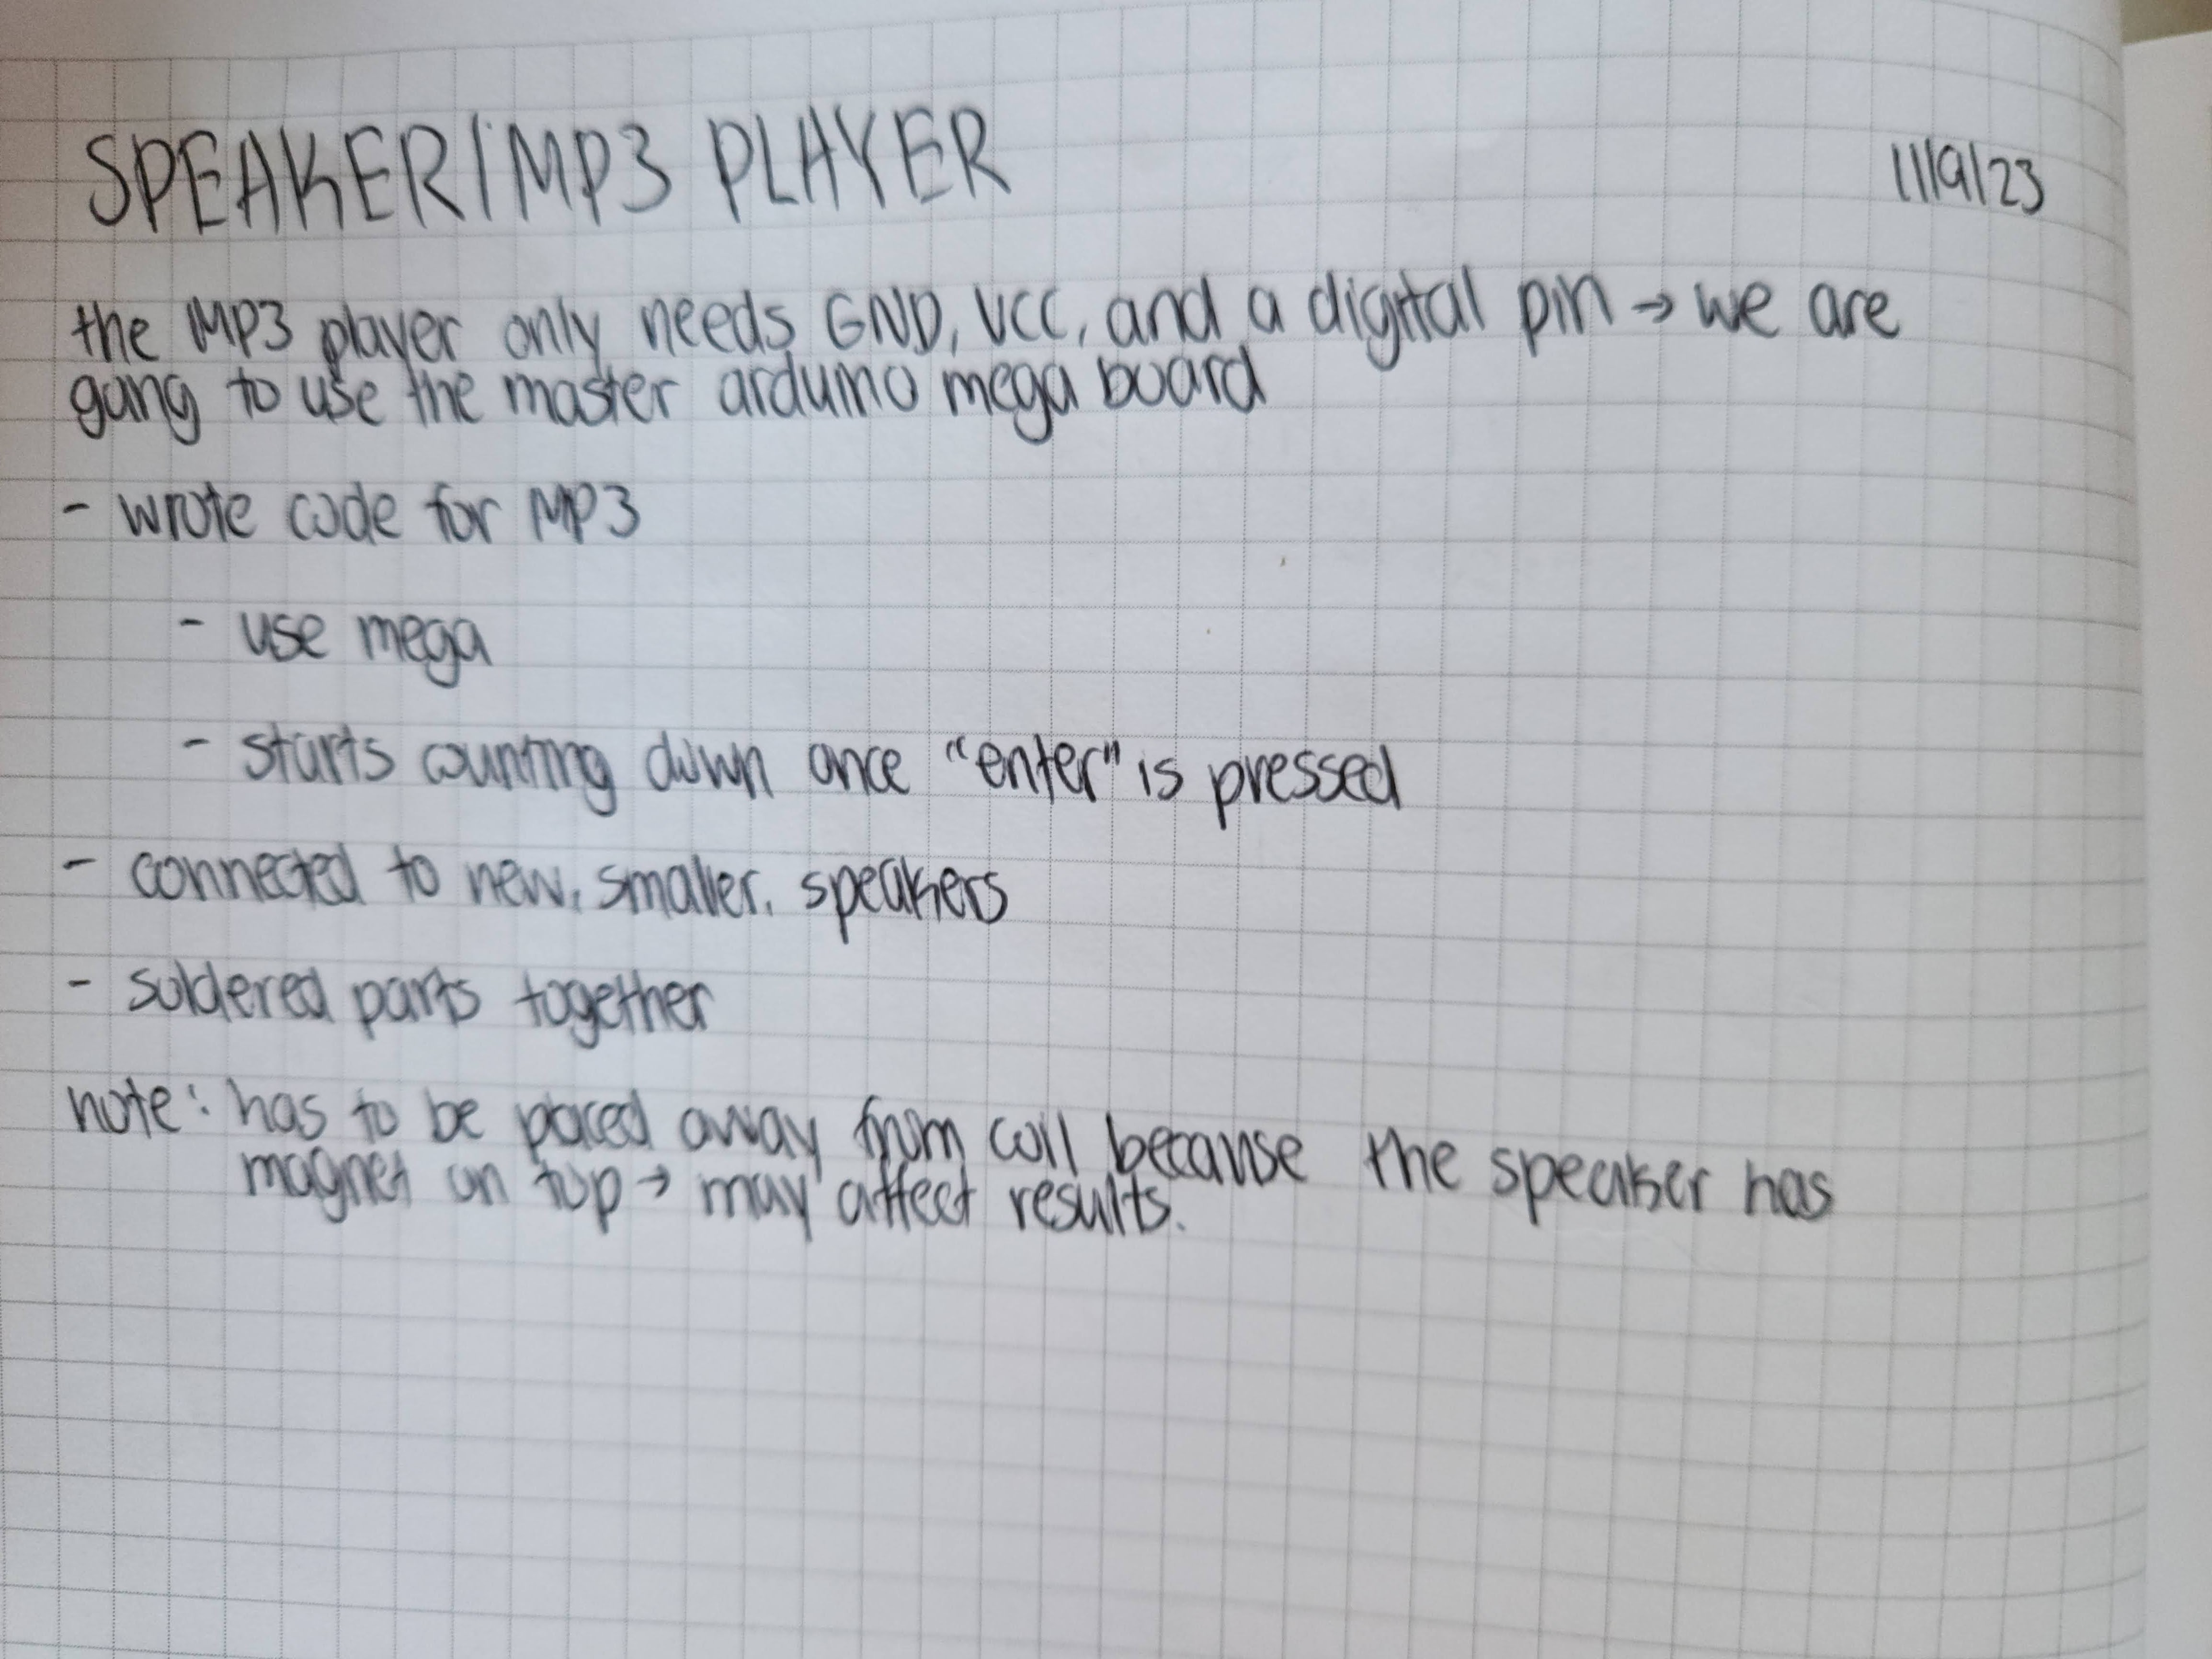 SPEAKER/MP3 PLAYER
11/9/23
the MP3 player only needs GND, VCC, and a digital pin → we are
going to use the master arduino mega board
- wrote code for MP3
- use mega
- starts counting down once "enter" is pressed
- connected to new, smaller, speakers
- soldered parts together
note: has to be placed away from coil because the speaker has
magnet on top → may affect results.